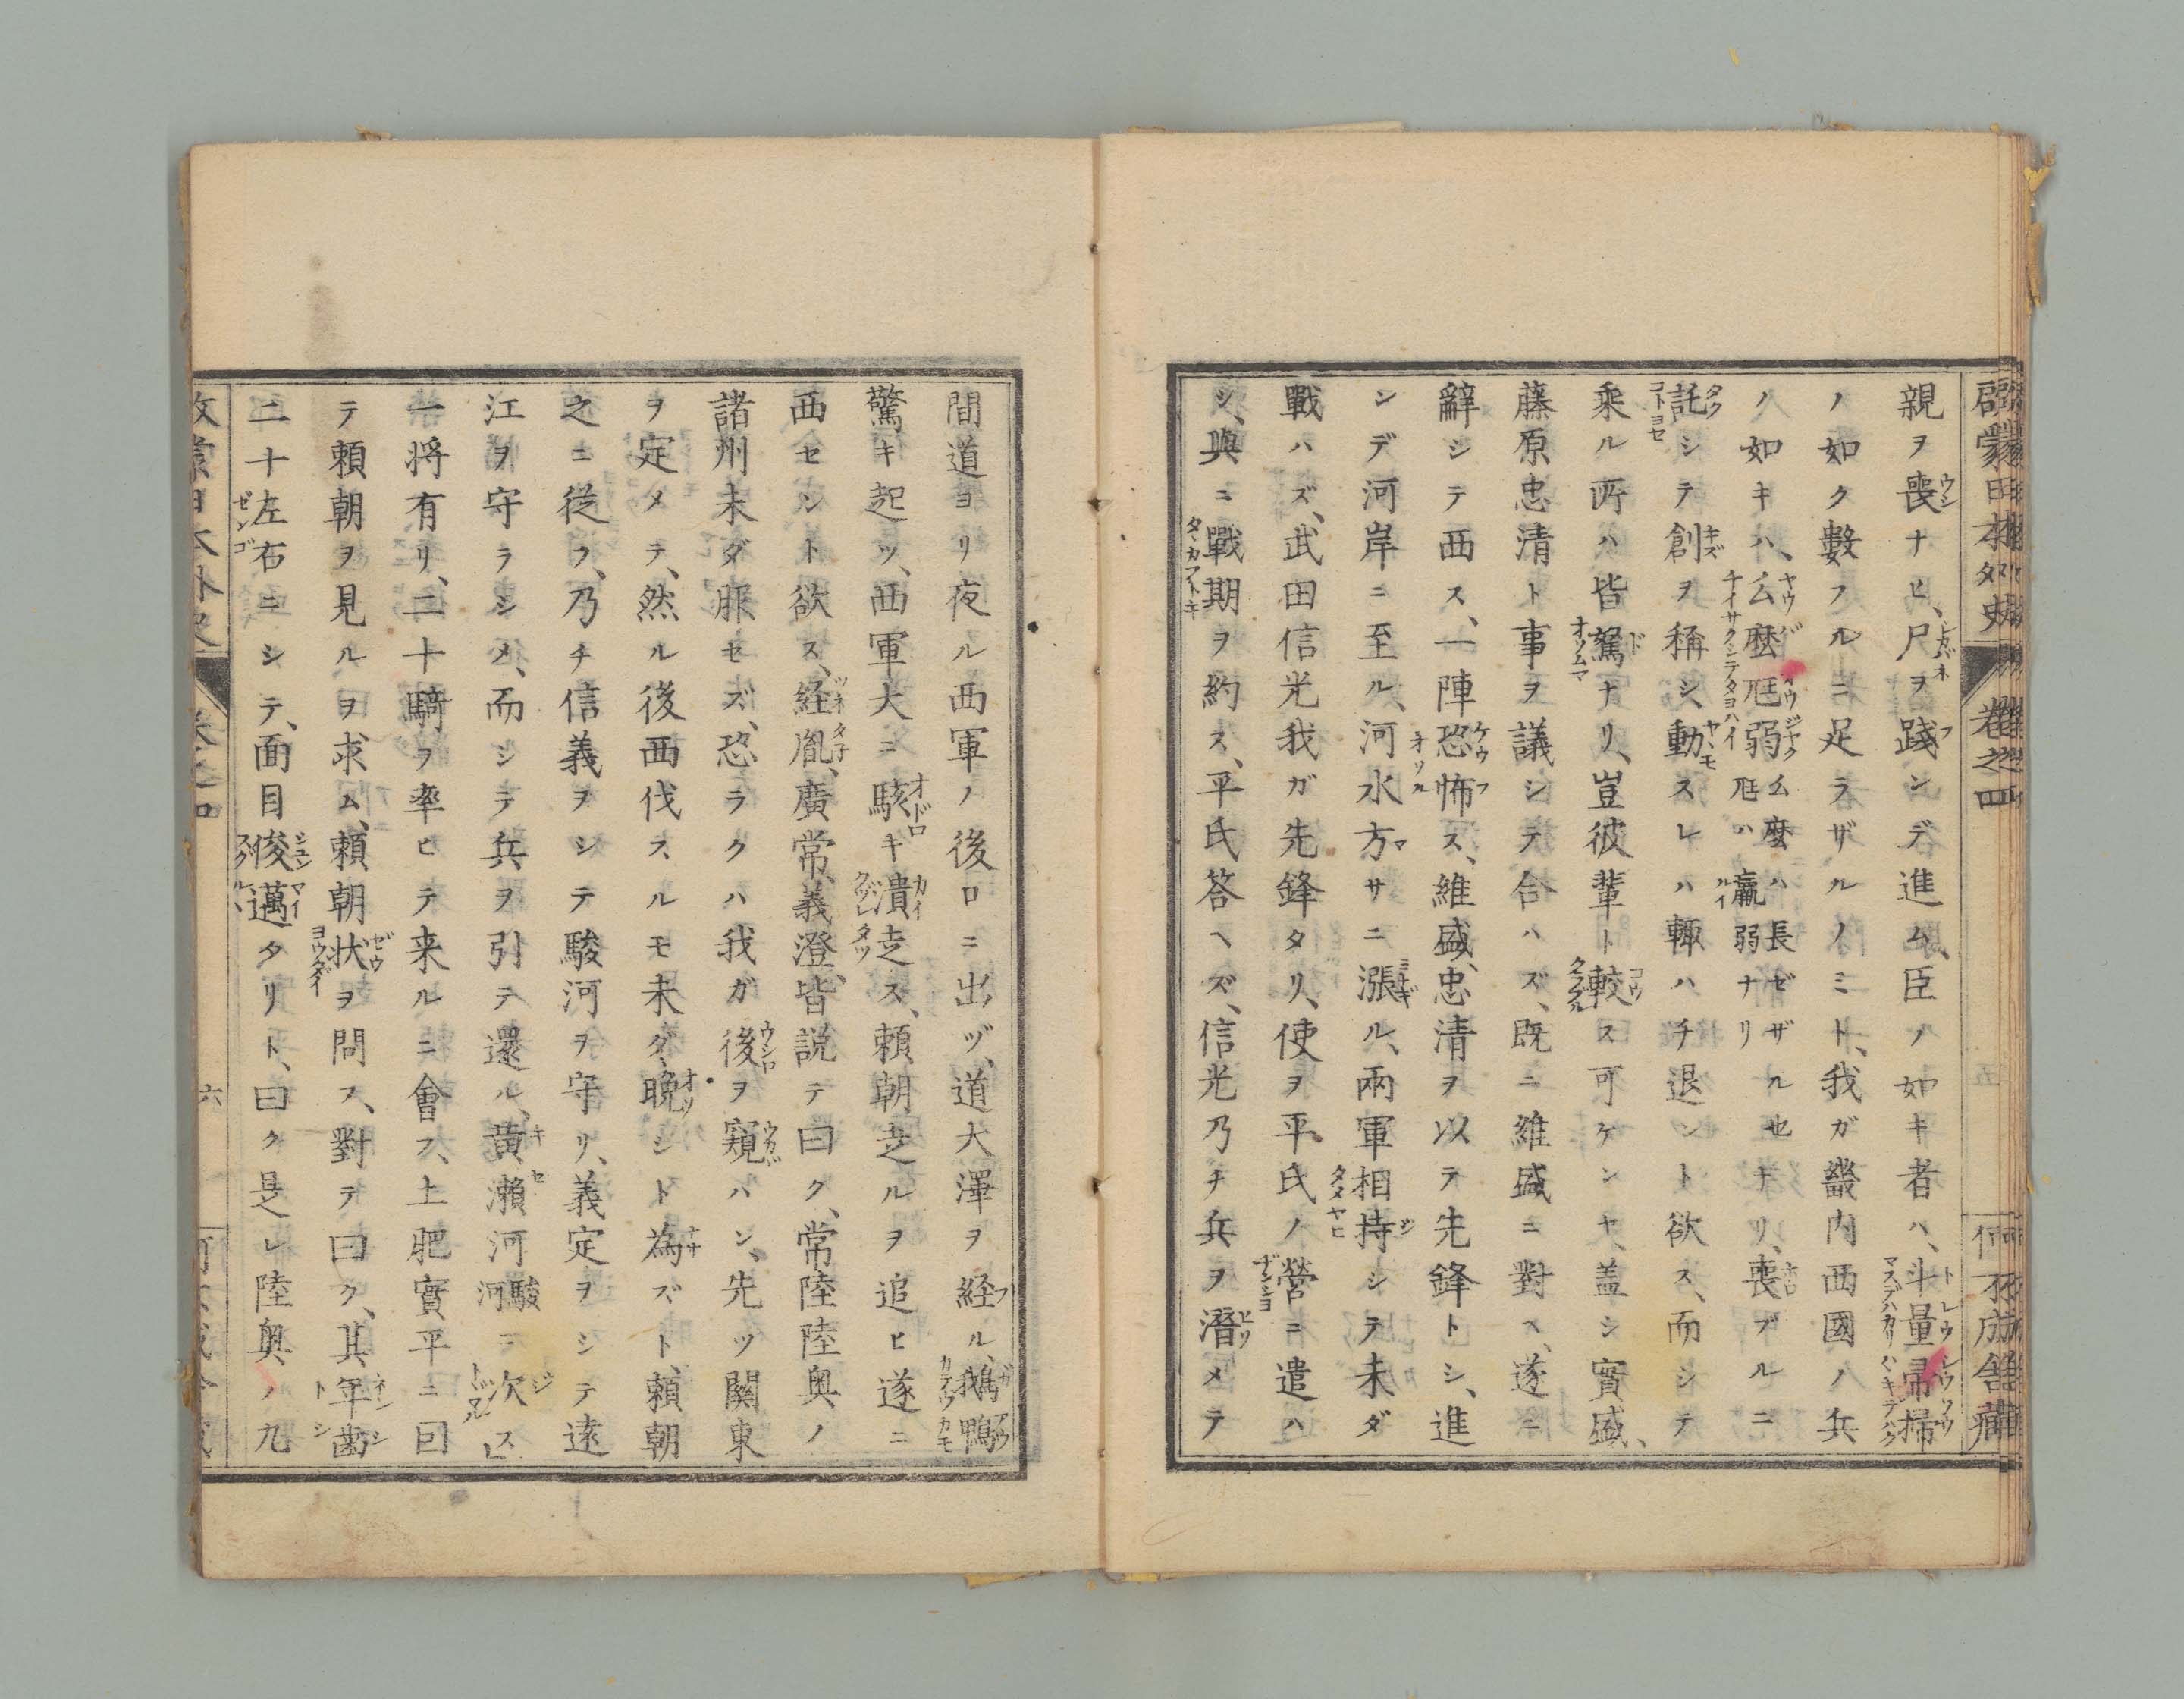 啓蒙日本外史 卷之四
親ヲ喪ナヒ、尺ヲ踐ンデ進ム、臣ノ如キ者ハ、斗量帚掃
ノ如ク數フルニ足ラザルノミト、我ガ畿内西國ノ兵
ノ如キハ、幺麽尫弱幺麽ハ長ゼザルセナリ、尫ハ羸弱ナリ喪ブルニ
託シテ創ヲ稱シ、動スレハ輙ハチ退ント欲ス、而シテ
乘ル所ハ皆駑ナリ、豈彼輩ト較ス可ケンヤ、盖シ實盛、
藤原忠清ト事ヲ議シテ合ハズ、既ニ維盛ニ對ヘ、遂ニ
辭シテ西ス、一陣恐怖ス、維盛、忠清ヲ以テ先鋒トシ、進
ンデ河岸ニ至ル、河水方サニ漲ル、兩軍相持シテ未ダ
戰ハズ、武田信光我ガ先鋒タリ、使ヲ平氏ノ營ニ遣ハ
シ、與ニ戰期ヲ約ス、平氏答ヘズ、信光乃チ兵ヲ潛メテ
間道ヨリ夜ル西軍ノ後ロニ出ヅ、道大澤ヲ経ル、鵝鴨
驚キ起ツ、西軍大ニ駭キ潰走ス、頼朝走ルヲ追ヒ遂ニ
西セント欲ス、経胤、廣常、義澄、皆説テ曰ク、常陸陸奥ノ
諸州未ダ服セズ、恐ラクハ我ガ後ヲ窺ハン、先ツ關東
ヲ定メテ、然ル後西伐スルモ未ダ晩シト為ズト、頼朝
之ニ従フ、乃チ信義ヲシテ駿河ヲ守リ、義定ヲシテ遠
江ヲ守ラシメ、而シテ兵ヲ引テ還ル、黄瀬河駿河ニ次ス
一将有リ、二十騎ヲ率ヒテ来ルニ會フ、土肥實平ニ因
テ頼朝ヲ見ルヲ求ム、頼朝状ヲ問フ、對テ曰ク、其年齒
二十左右ニシテ、面目俊邁タリト、曰ク是レ陸奥ノ九
六